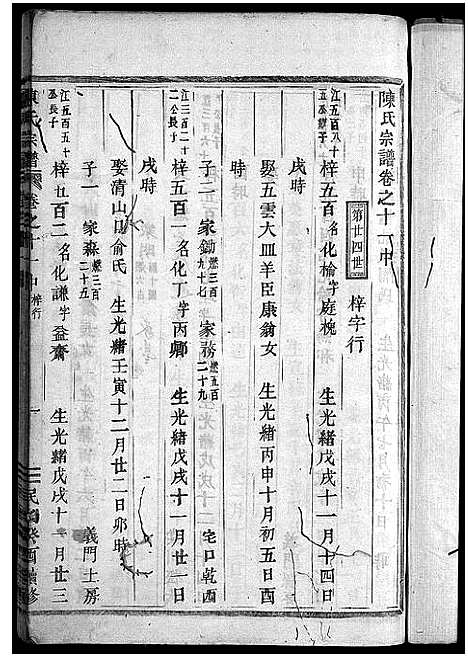 陳氏宗譜卷之十一中
第廿四世 梓字行
江五百八十五公長子 梓五百 名化棆字庭槐 生光緒戊戌十一月十四日
戌時
娶五雲大皿羊臣康翁女 生光緒丙申十月初五日酉
時
子二 家鋤 家務 宅口乾西
江三百二十二公長子 梓五百一 名化丁字丙卿 生光緒戊戌十一月廿一日
戌時
娶清山口俞氏 生光緒壬寅十二月廿二日卯時
子一 家森 義門上房
江五百五十丕長子 梓五百二 名化謙字益齋 生光緒戊戌十一月廿三
陳氏宗譜 卷之十一中 梓行 一 民國癸酉續修